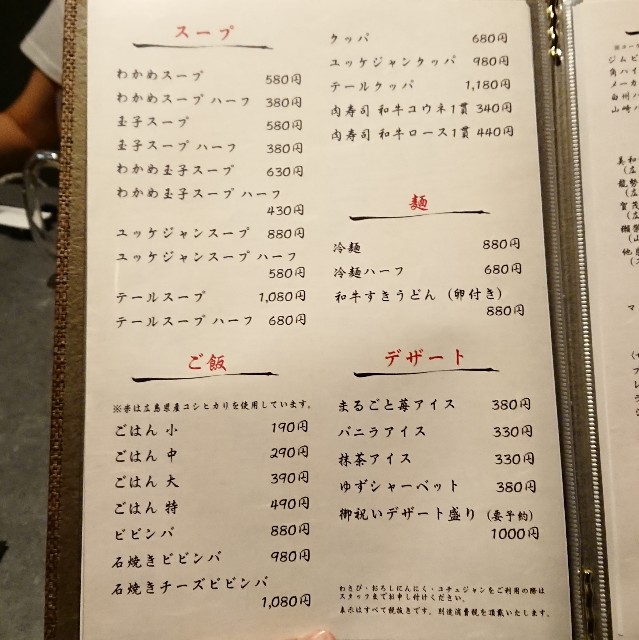 スープ
わかめスープ 580円
わかめスープ ハーフ 380円
玉子スープ 580円
玉子スープ ハーフ 380円
わかめ玉子スープ 630円
わかめ玉子スープ ハーフ
430円
ユッケジャンスープ 880円
ユッケジャンスープ ハーフ
580円
テールスープ 1,080円
テールスープ ハーフ 680円
ご飯
※米は広島県産コシヒカリを使用しています。
ごはん 小 190円
ごはん 中 290円
ごはん 大 390円
ごはん 特 490円
ビビンバ 880円
石焼きビビンバ 980円
石焼きチーズビビンバ
1,080円
クッパ 680円
ユッケジャンクッパ 980円
テールクッパ 1,180円
肉寿司 和牛コウネ1貫 340円
肉寿司 和牛ロース1貫 440円
麺
冷麺 880円
冷麺ハーフ 680円
和牛すきうどん (卵付き)
880円
デザート
まるごと苺アイス 380円
バニラアイス 330円
抹茶アイス 330円
ゆずシャーベット 380円
御祝いデザート盛り (要予約)
1000円
わさび・おろしにんにく・コチュジャンをご利用の際は
スタッフまでお申し付けください。
表示はすべて税抜きです。別途消費税を頂戴いたします。
ジムビ
角ハイ
メーカ
白州ハ
山崎ハ
美和
龍勢
賀茂